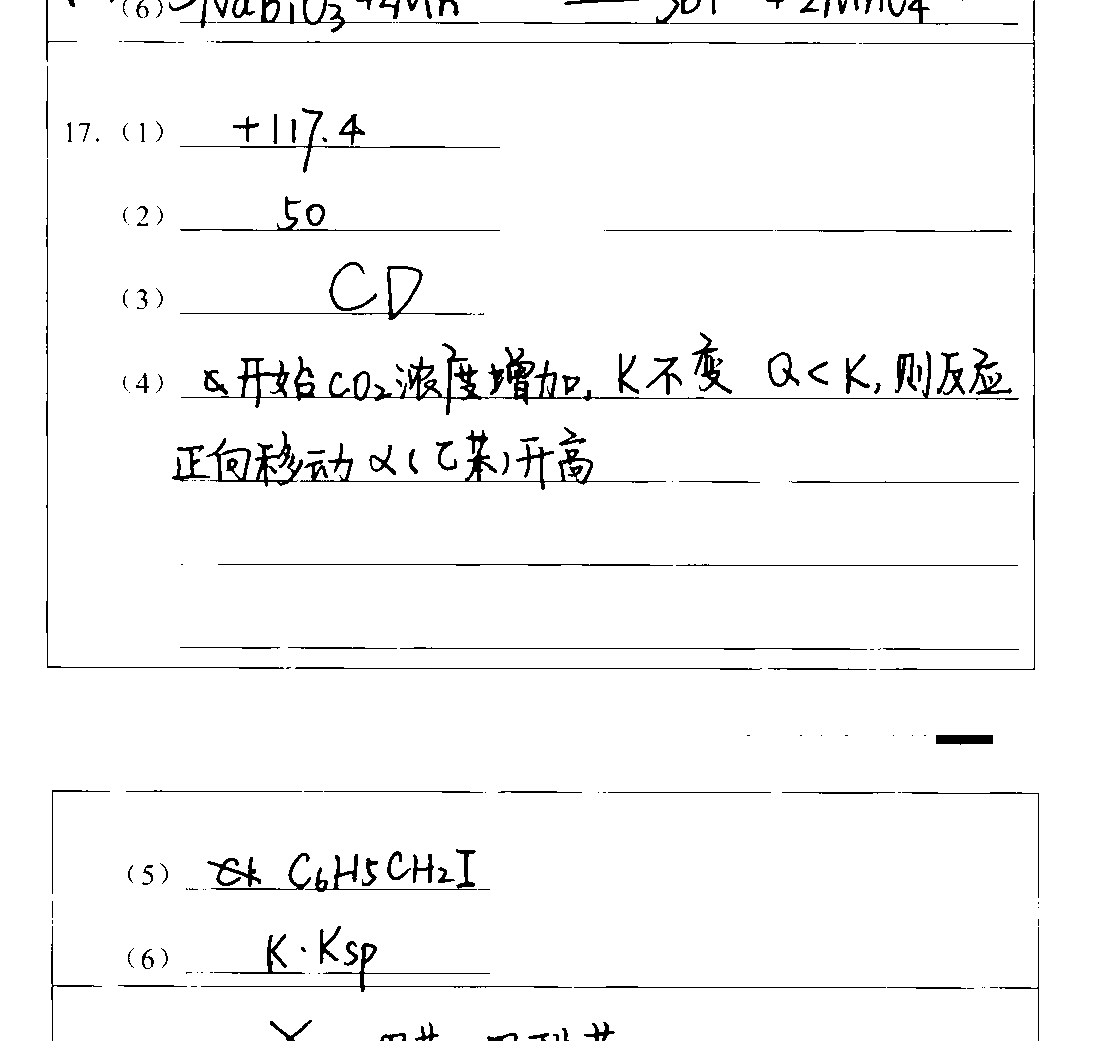 (6) NaBiO3+4Mn == 5Bi + 2MnO4
17. (1) +117.4
(2) 50
(3) CD
(4) 开始CO2浓度增加, K不变 Q<K, 则反应
正向移动 α(乙苯)升高
(5) C6H5CH2I
(6) K·Ksp